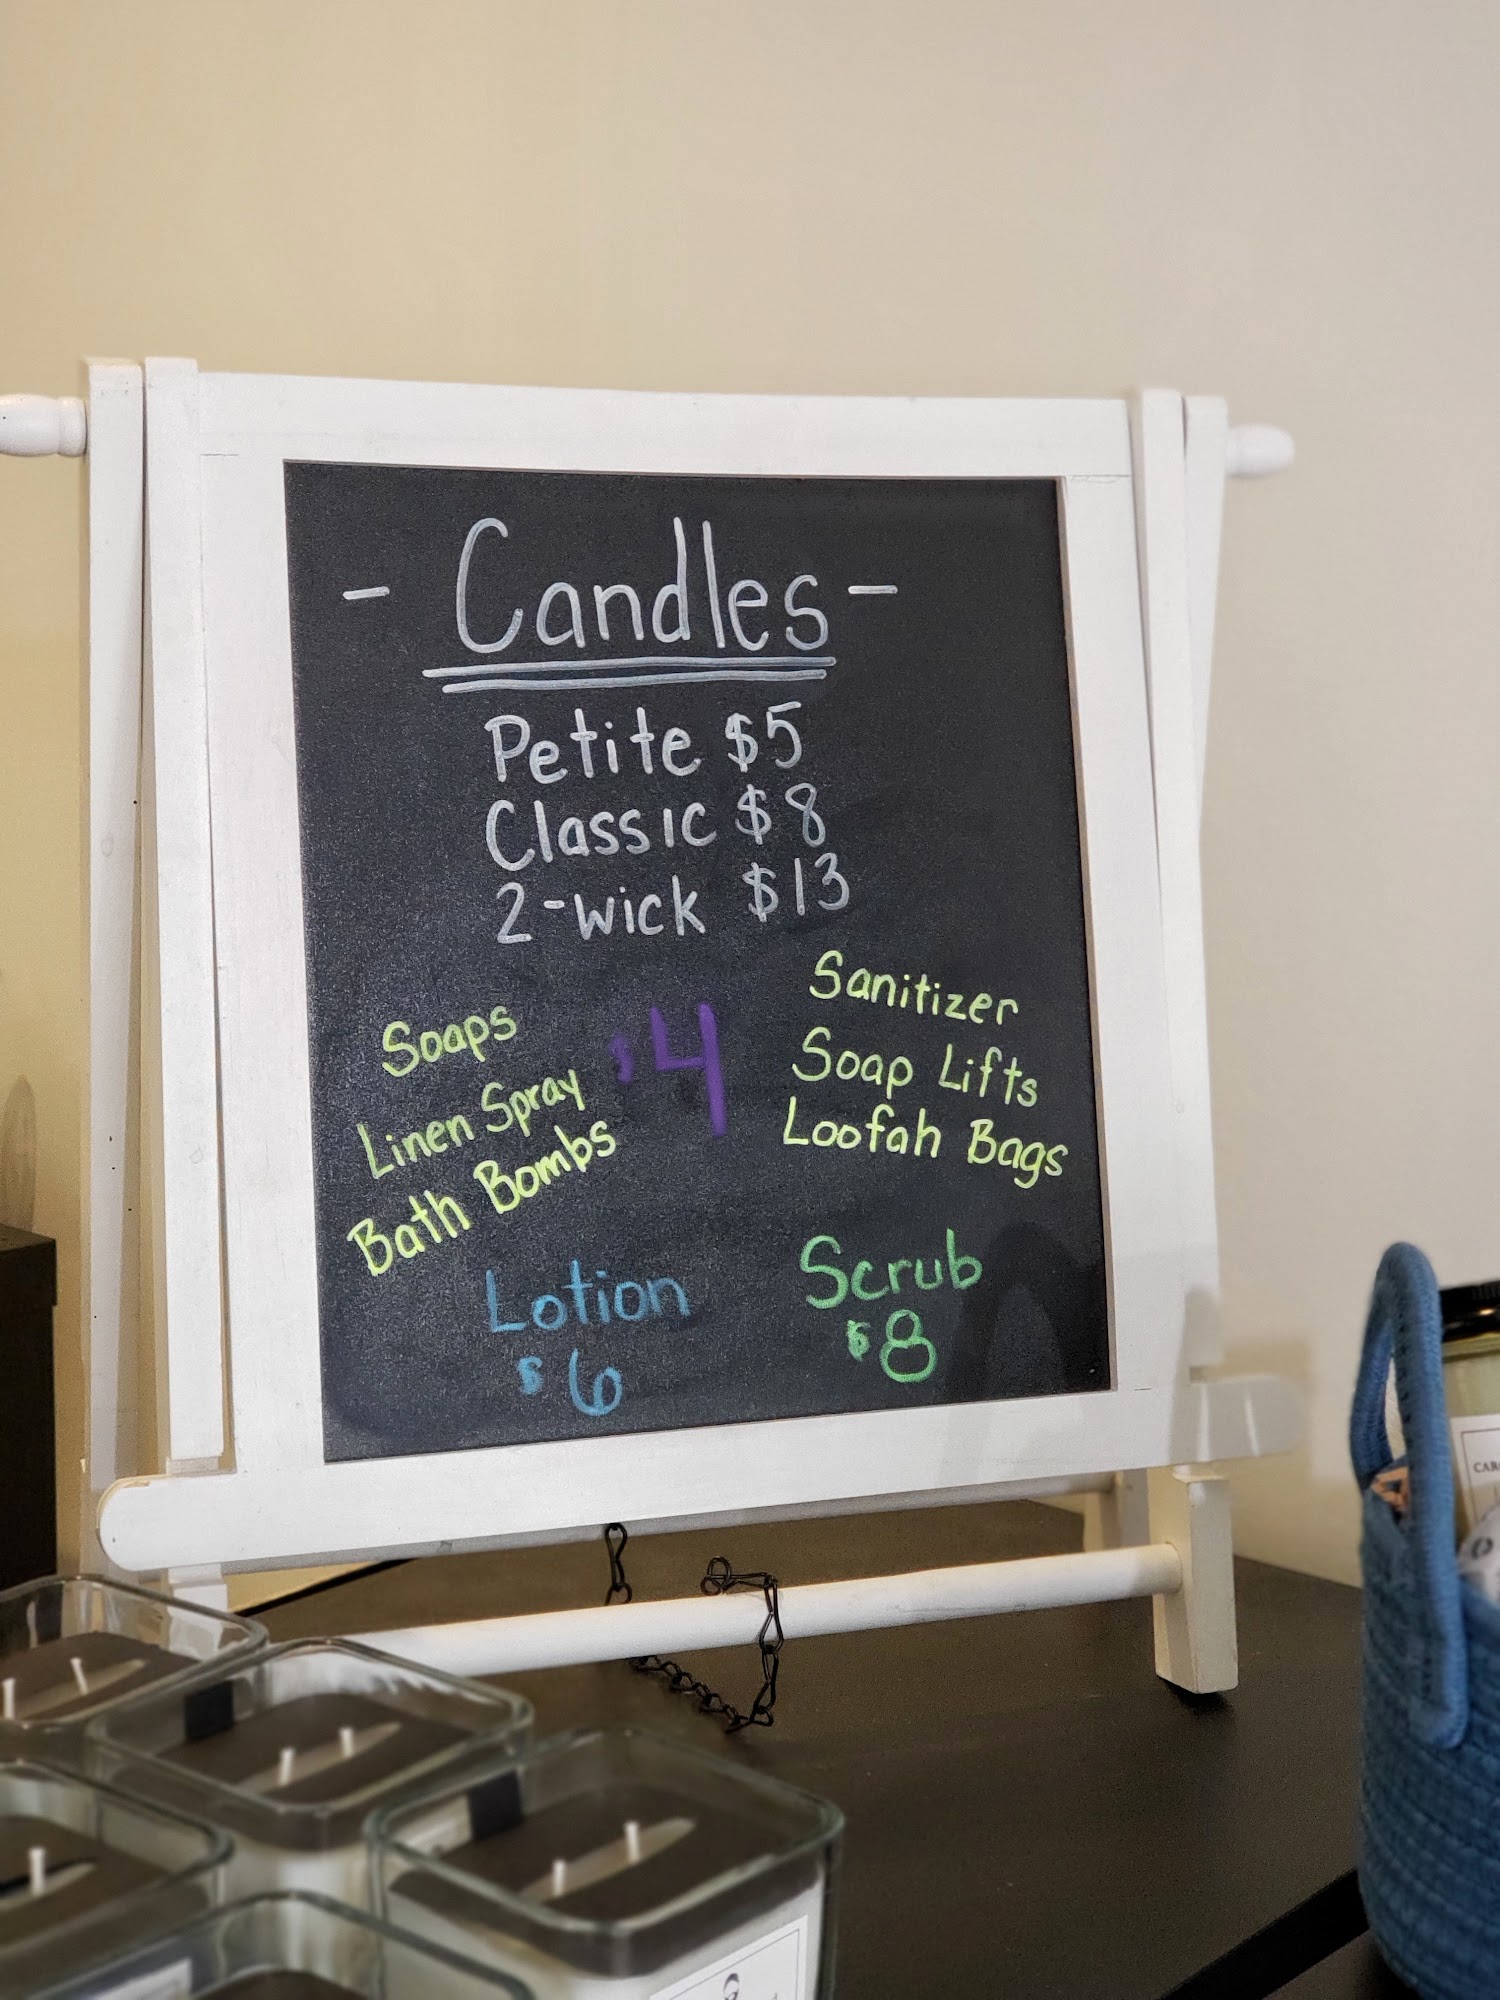 - Candles -
Petite $5
Classic $8
2-wick $13
Soaps
Linen Spray
Bath Bombs
$4
Sanitizer
Soap Lifts
Loofah Bags
Lotion
$6
Scrub
$8